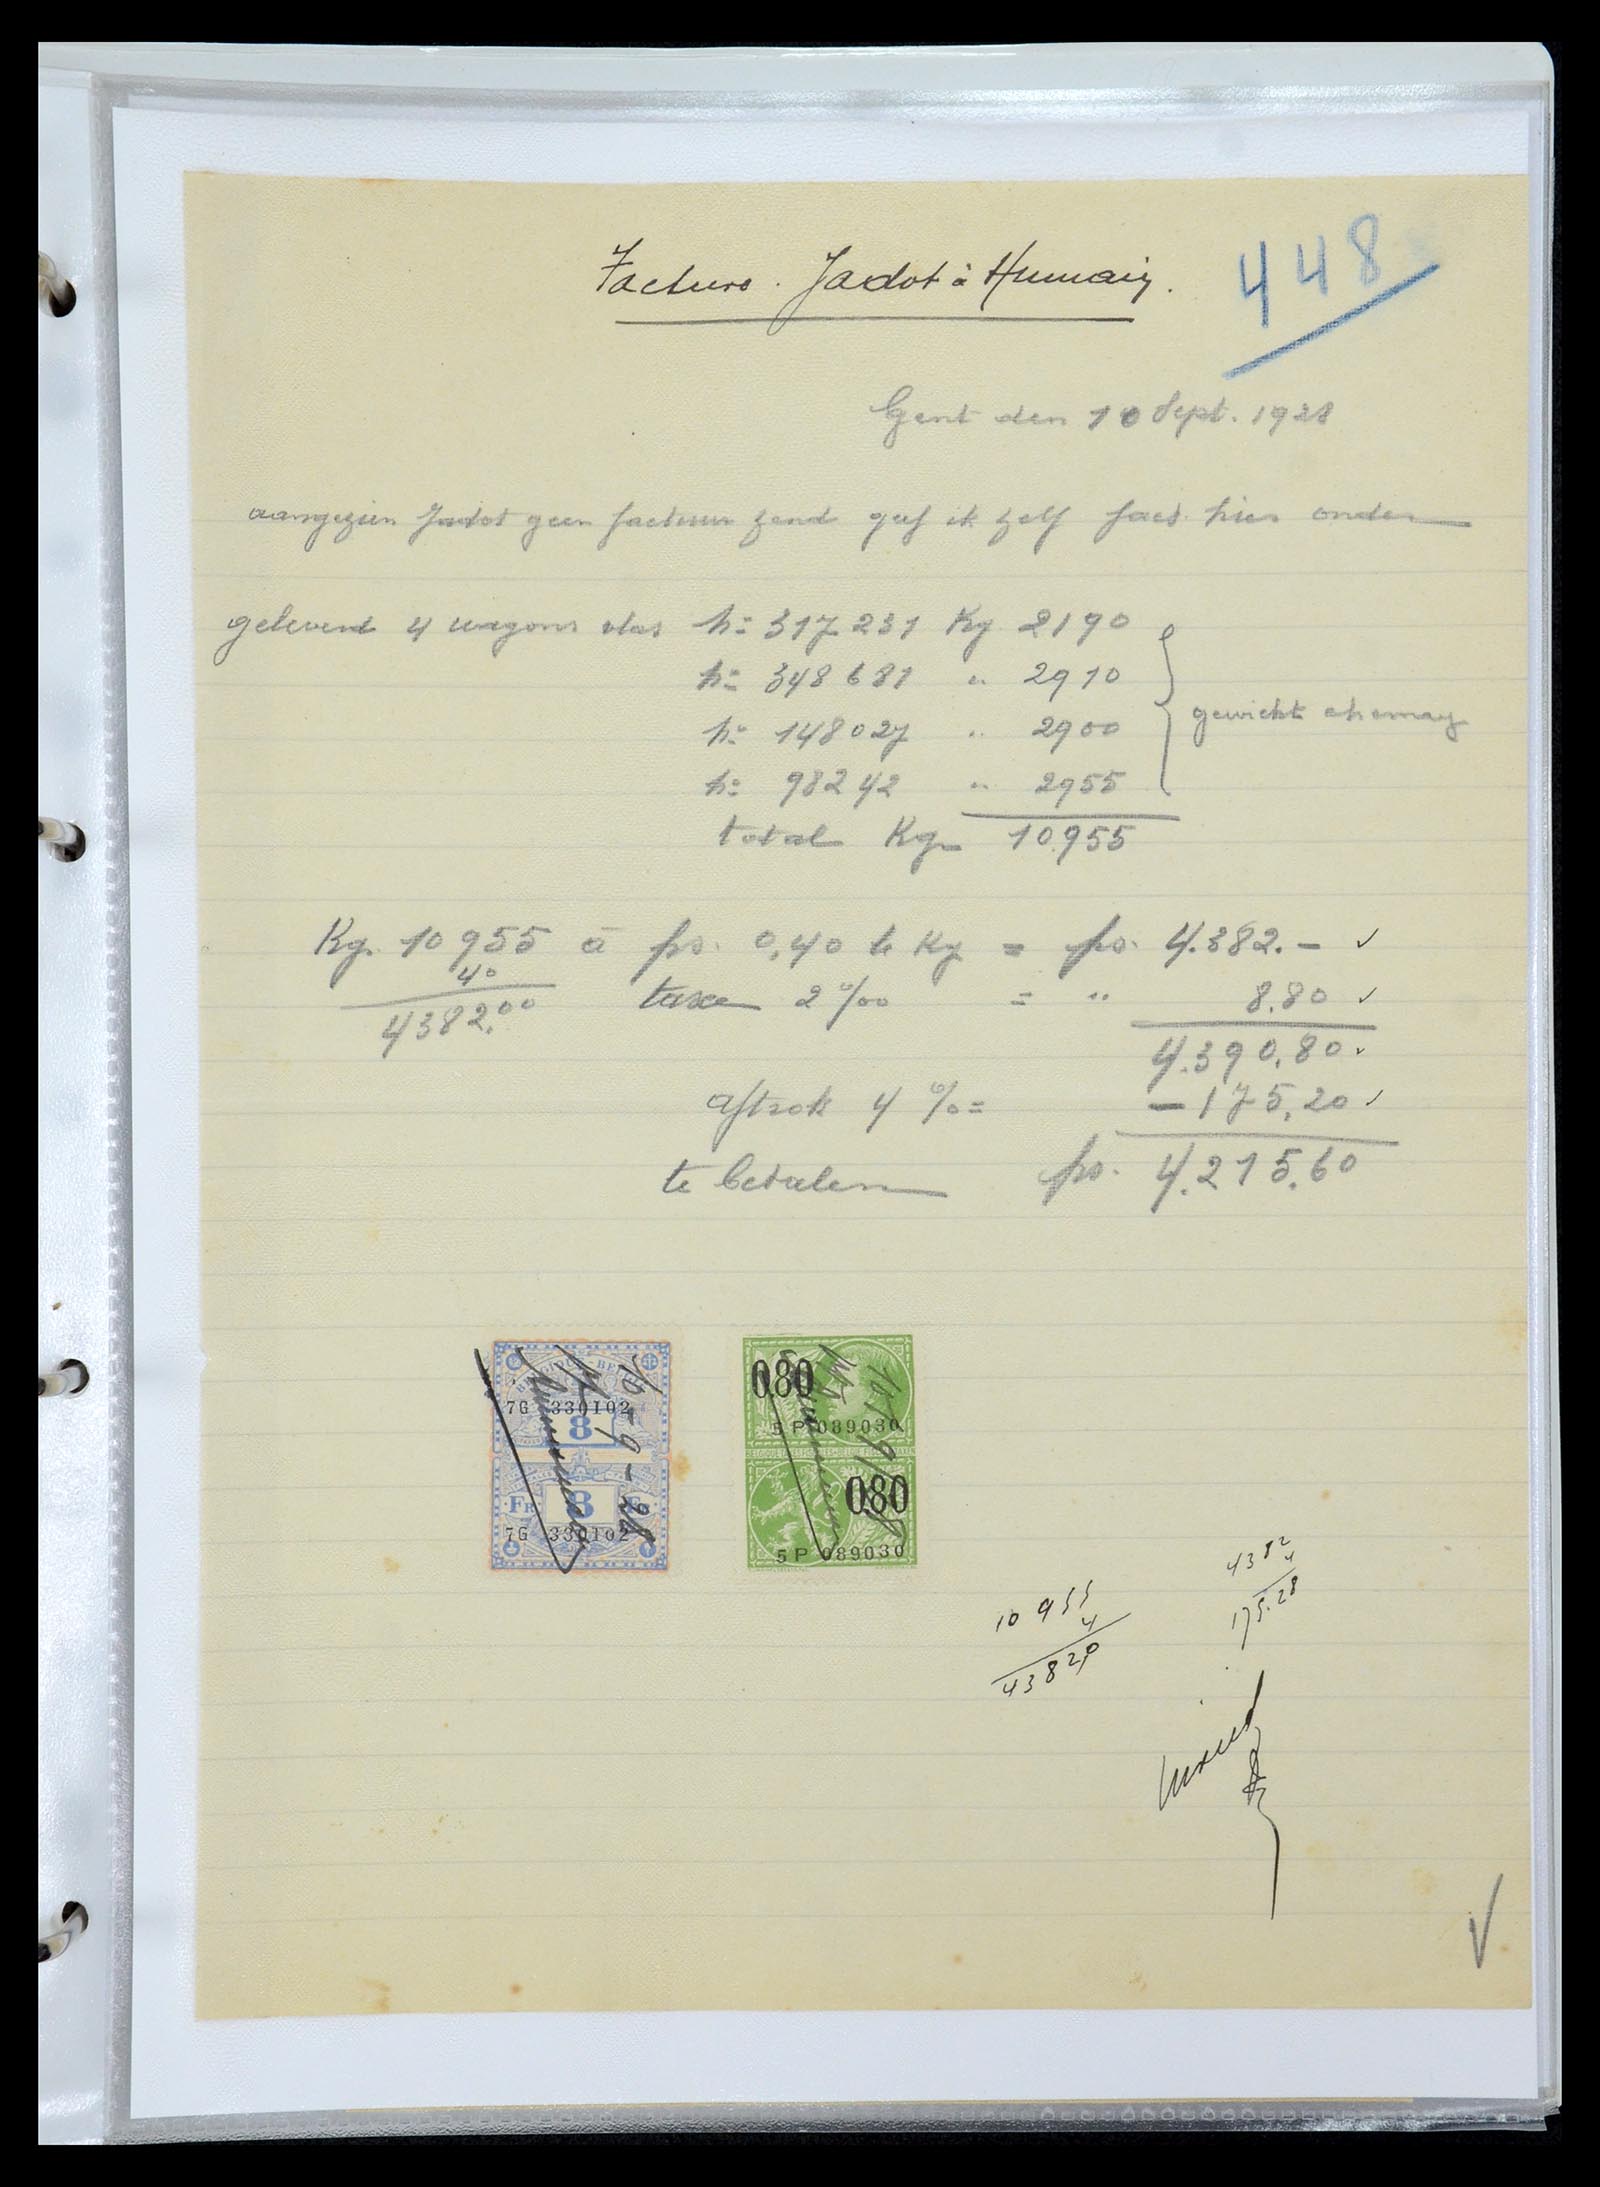 Facture. Jadot à Humain.
448
Gent den 10 Sept. 1928
aangezien Jadot geen factuur zend geef ik zelf fact. hier onder
geleverd 4 wagons vlas n= 317231 Kg 2190
n= 348681 " 2910
n= 148027 " 2900
n= 98242 " 2955
gewicht
total Kg 10.955
Kg. 10955 à frs. 0,40 te Kg = frs. 4.382.- ✓
40
4382.00
taxe 2 ‰ = " 8.80 ✓
4.390.80.
aftrok 4 % = - 175,20 ✓
te betalen frs. 4.215.60
BELGIQUE-BELGIË
7G 330102
8
FR 8
7G 330102
10-9-28
0.80
5P 089030
0.80
5P 089030
10955
4
43820
4382
4
175.28